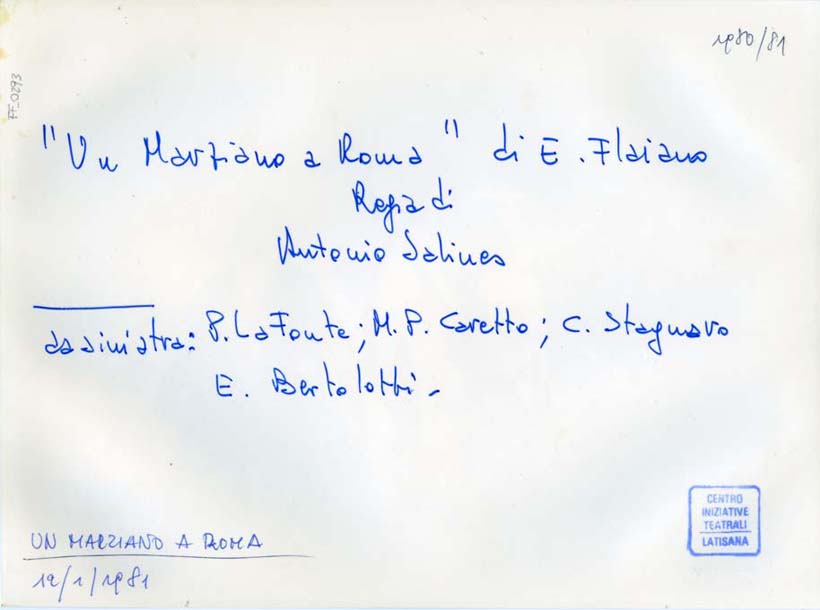 1980/81
FF_0293
"Un Marziano a Roma" di E. Flaiano
Regia di
Antonio Salines
da sinistra: P. La Fonte; M. P. Caretto; C. Stagnaro
E. Bertolotti -
CENTRO
INIZIATIVE
TEATRALI
LATISANA
UN MARZIANO A ROMA
12/1/1981